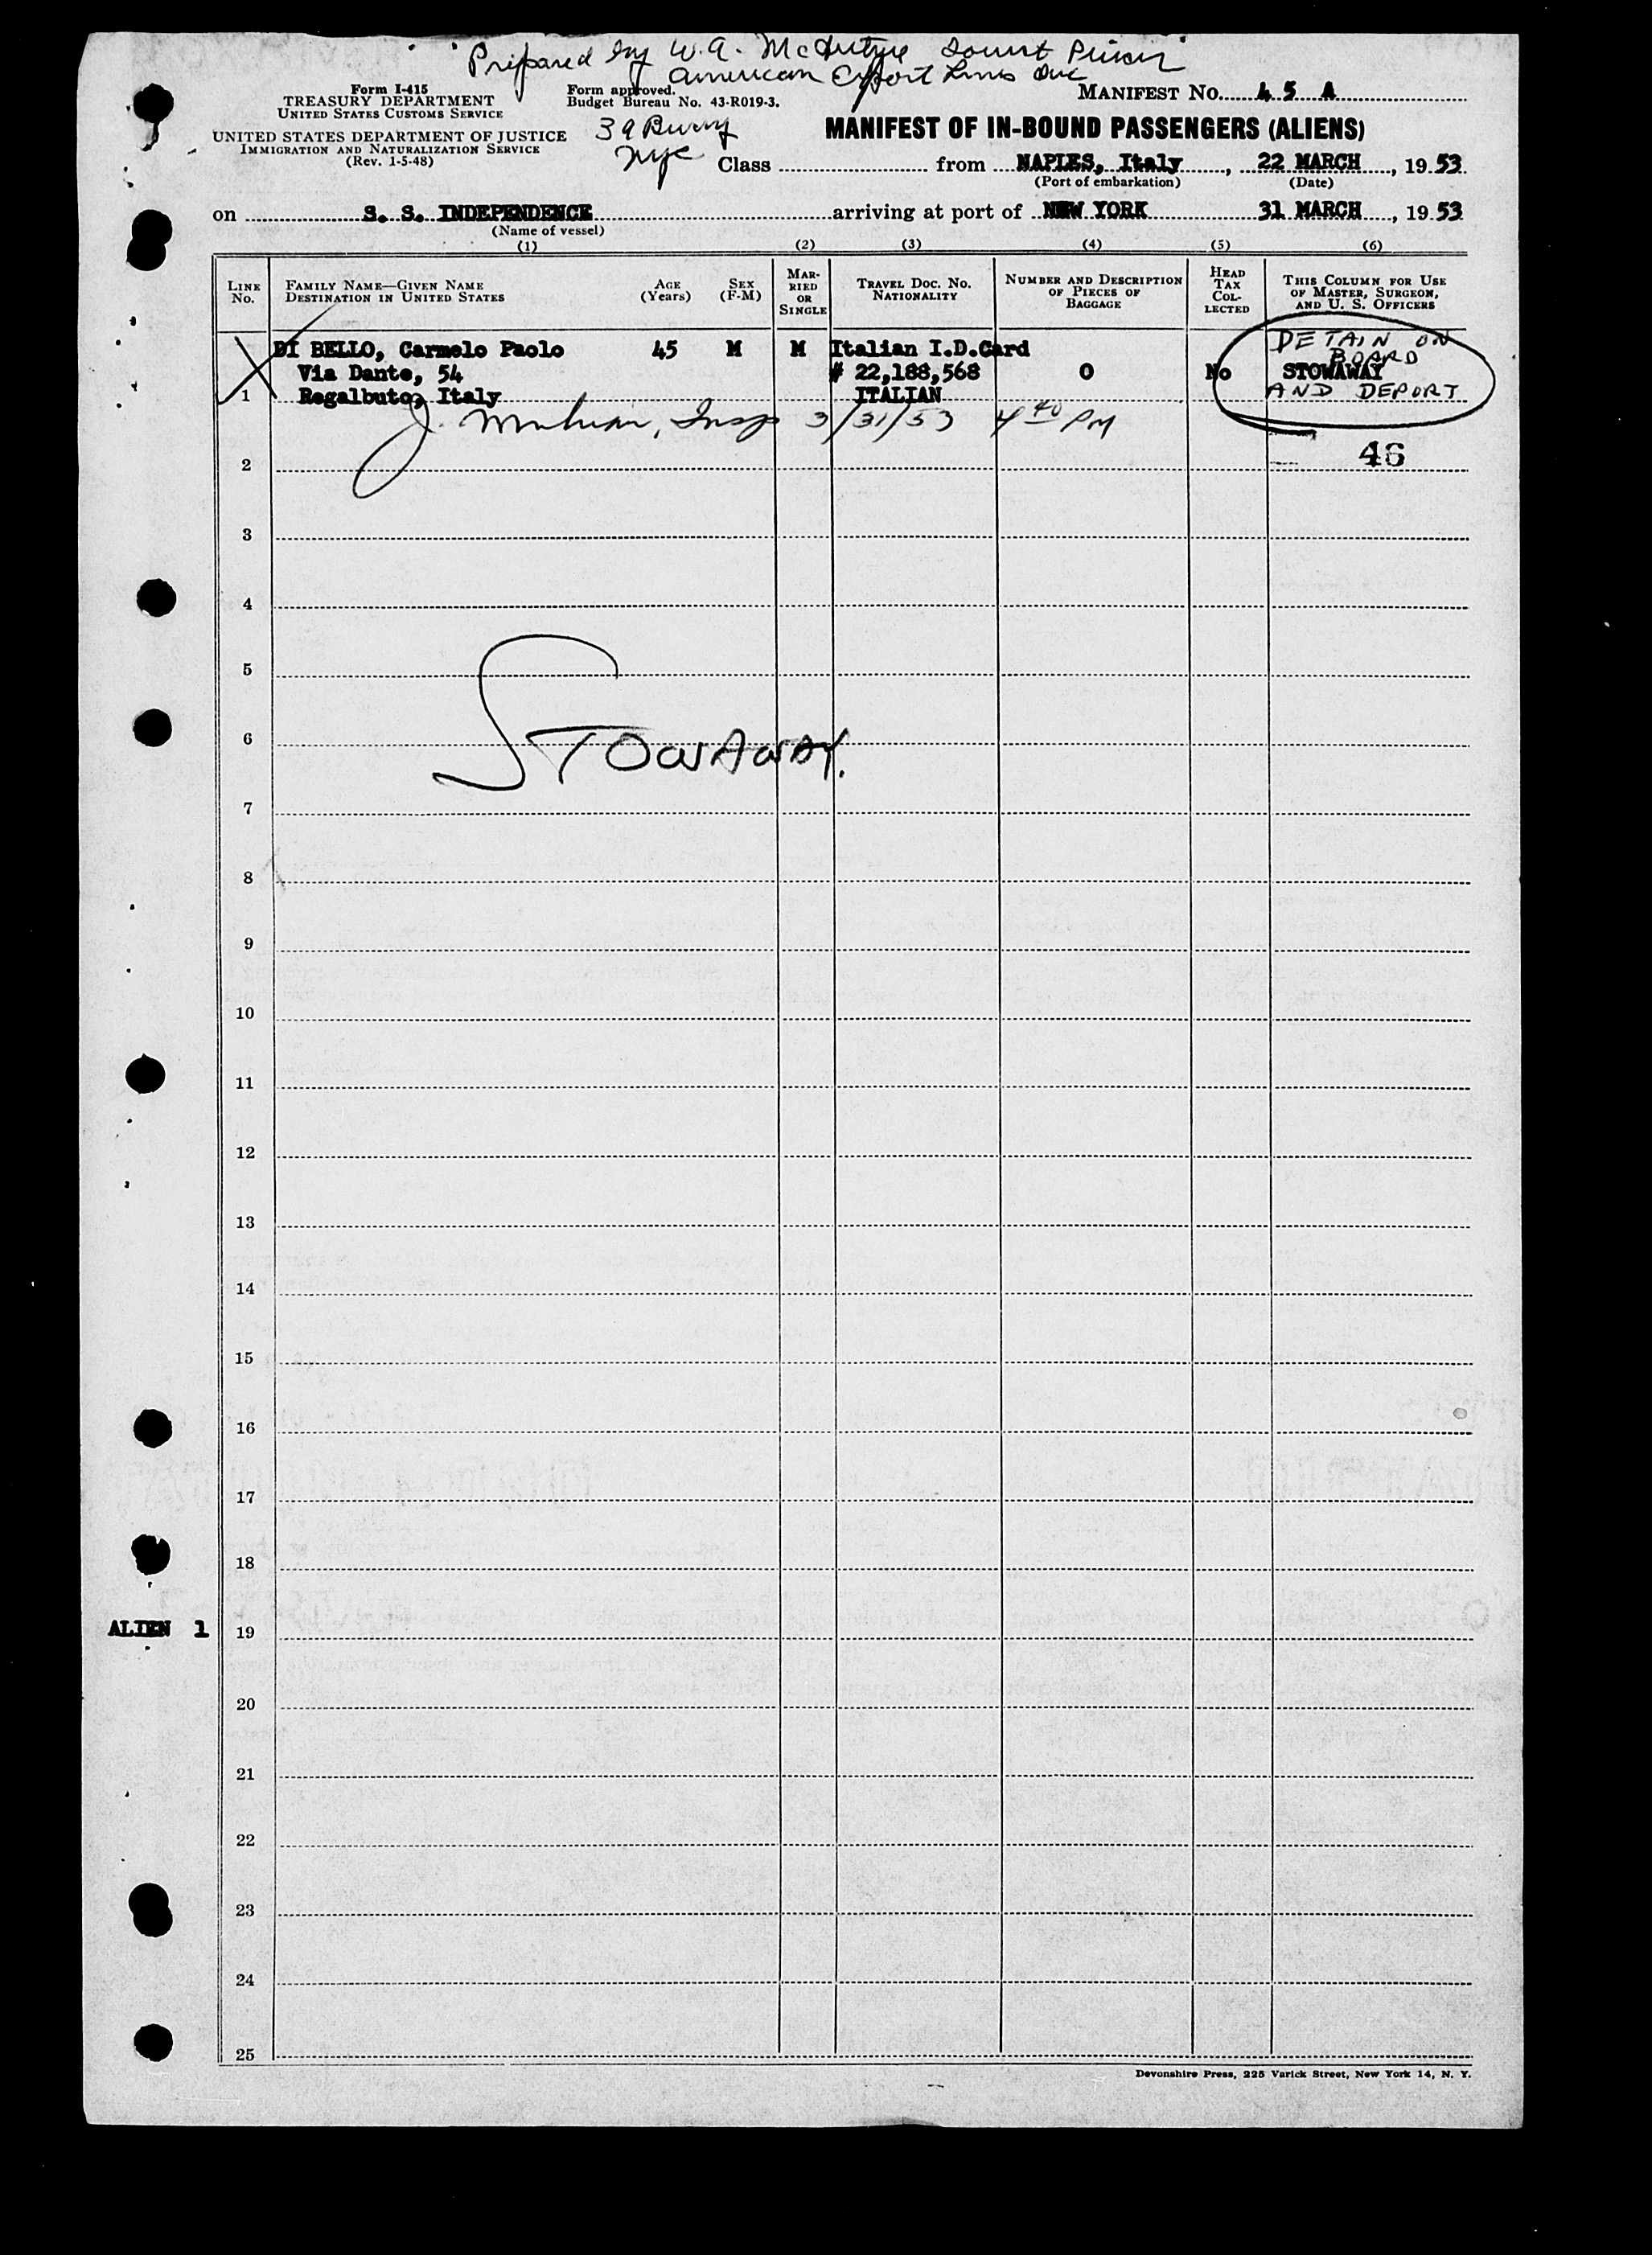 Prepared by W.A. McIntyre
American Export Lines Inc
Form I-415
TREASURY DEPARTMENT
UNITED STATES CUSTOMS SERVICE
UNITED STATES DEPARTMENT OF JUSTICE
IMMIGRATION AND NATURALIZATION SERVICE
(Rev. 1-5-48)
Form approved.
Budget Bureau No. 43-R019-3.
39
NYC
MANIFEST No. 45 A
MANIFEST OF IN-BOUND PASSENGERS (ALIENS)
Class from NAPLES, Italy, 22 MARCH, 1953
(Port of embarkation) (Date)
on S. S. INDEPENDENCE arriving at port of NEW YORK 31 MARCH, 1953
(Name of vessel)
(1) (2) (3) (4) (5) (6)
LINE No.
FAMILY NAME—GIVEN NAME
DESTINATION IN UNITED STATES
AGE (Years)
SEX (F-M)
MARRIED OR SINGLE
TRAVEL DOC. NO. NATIONALITY
NUMBER AND DESCRIPTION OF PIECES OF BAGGAGE
HEAD TAX COLLECTED
THIS COLUMN FOR USE OF MASTER, SURGEON, AND U. S. OFFICERS
DI BELLO, Carmelo Paolo 45 M M Italian I.D.Card DETAIN ON BOARD
Via Dante, 54 # 22,188,568 0 No STOWAWAY
1 Regalbuto, Italy ITALIAN AND DEPORT
J. Insp 3/31/53 4 40 PM
2 46
3
4
5
6 STOWAWAY.
7
8
9
10
11
12
13
14
15
16
17
18
ALIEN 1 19
20
21
22
23
24
25
Devonshire Press, 225 Varick Street, New York 14, N. Y.